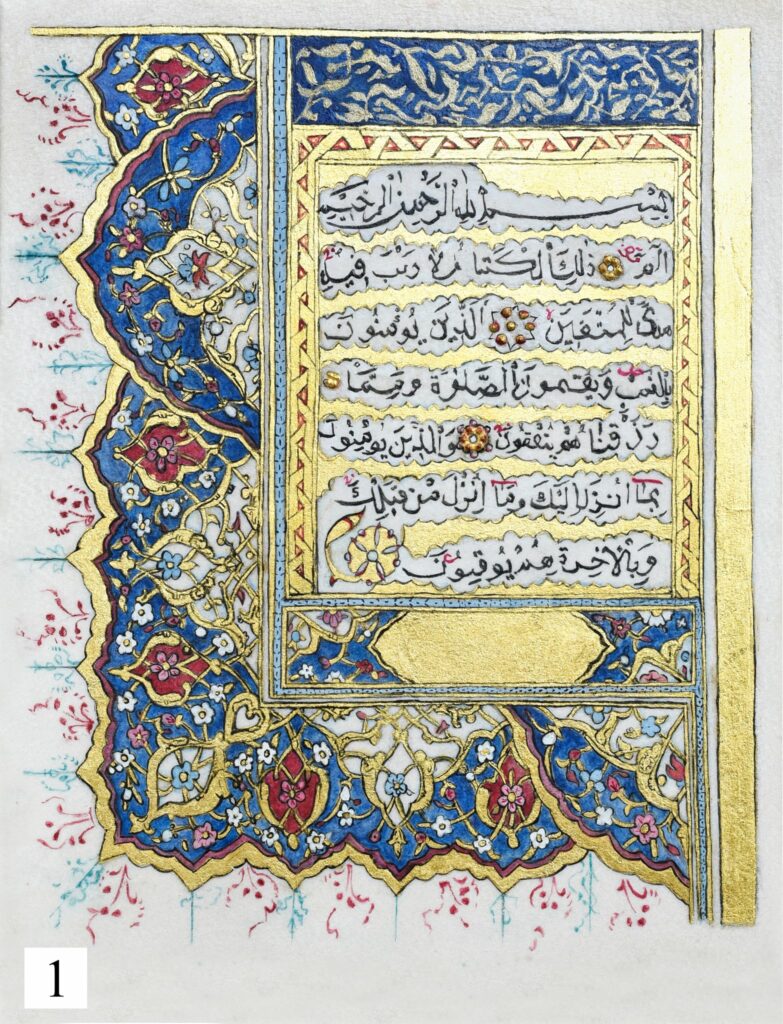 بسم الله الرحمن الرحيم
الم ذلك الكتاب لا ريب فيه
هدى للمتقين الذين يؤمنون
بالغيب ويقيمون الصلوة ومما
رزقناهم ينفقون والذين يؤمنون
بما أنزل إليك وما انزل من قبلك
وبالاخرة هم يوقنون
1